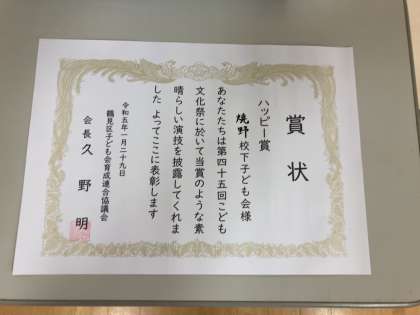 賞状
ハッピー賞
焼野校下子ども会様
あなたたちは第四十五回こども
文化祭に於いて当賞のような素
晴らしい演技を披露してくれま
した よってここに表彰します
令和五年一月二十九日
鶴見区子ども会育成連合協議会
会長 久野 明